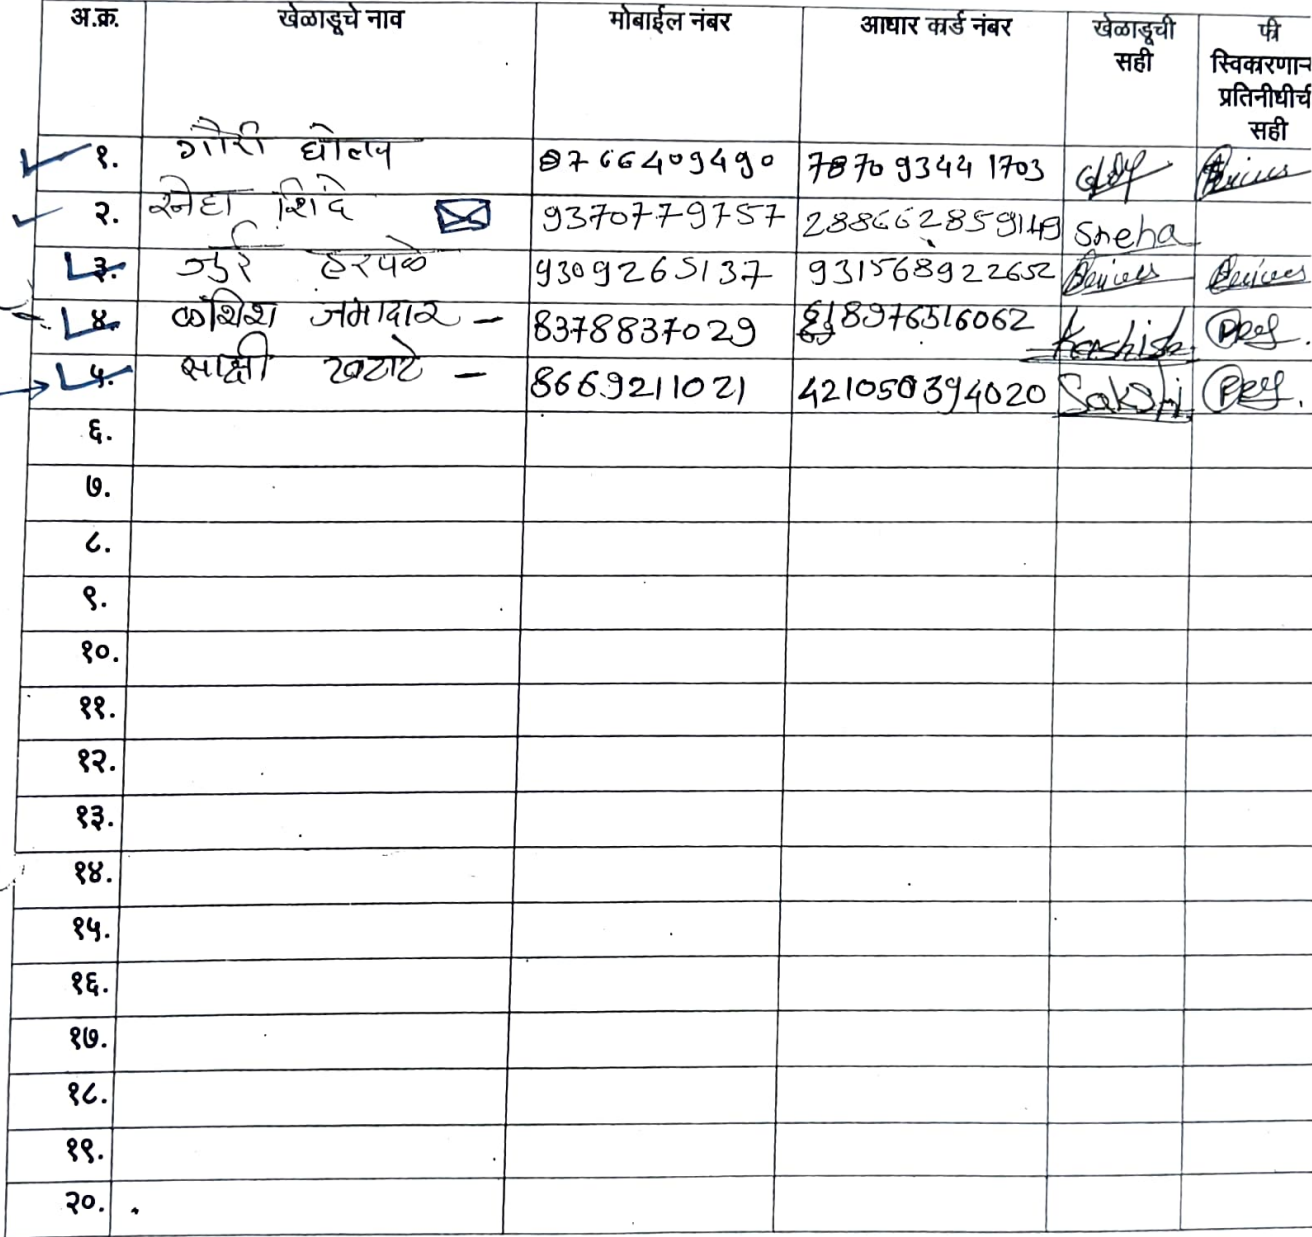 अ.क्र. खेळाडूचे नाव मोबाईल नंबर आधार कार्ड नंबर खेळाडूची सही फी स्विकारणा प्रतिनीधीची सही
१. गौरी घोलप 8766409490 7870 9344 1703
२. स्नेहा शिंदे 9370779757 Sneha
३. जुई हरपळे 9309265137 931568922652
४. कशिश जमादार - 8378837029 618976516062 Kashish
५. साक्षी खटाटे - 8669211021 421050394020 Sakshi
६.
७.
८.
९.
१०.
११.
१२.
१३.
१४.
१५.
१६.
१७.
१८.
१९.
२०.